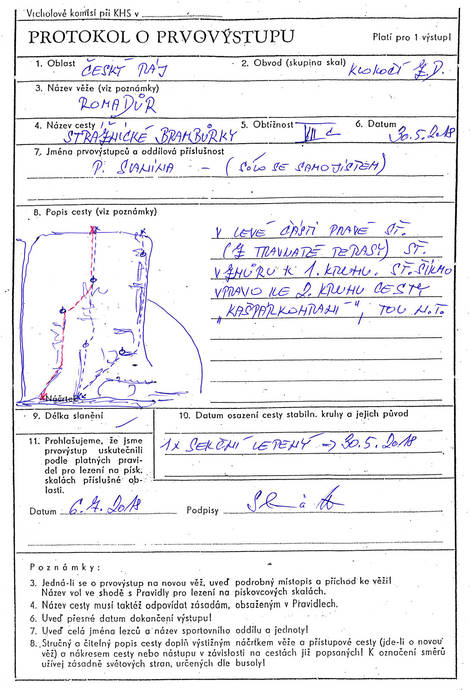 Vrcholové komisi při KHS v
PROTOKOL O PRVOVÝSTUPU
Platí pro 1 výstup!
1. Oblast ČESKÝ RÁJ
2. Obvod (skupina skal) KLOKOČÍ Z.D.
3. Název věže (viz poznámky)
ROMADŮR
4. Název cesty STRÁŽNICKÉ BRAMBŮRKY
5. Obtížnost VIII c
6. Datum 30.5.2018
7. Jména prvovýstupců a oddílová příslušnost
P. SLANINA – (SÓLO SE SAMOJISTĚM)
8. Popis cesty (viz poznámky)
V LEVÉ ČÁSTI PRAVÉ ST.
(Z TRAVNATÉ TERASY) ST.
VZHŮRU K 1. KRUHU. ST. ŠIKMO
VPRAVO KE 2. KRUHU CESTY
„KAŠPÁRKOHRANÍ“, TOU N.T.
Náčrtek
9. Délka slanění
10. Datum osazení cesty stabiln. kruhy a jejich původ
1x SEKČNÍ LEPENÝ → 30.5.2018
11. Prohlašujeme, že jsme
prvovýstup uskutečnili
podle platných pravi-
del pro lezení na písk.
skalách příslušné ob-
lasti.
Datum 6.7.2018
Podpisy
Poznámky:
3. Jedná-li se o prvovýstup na novou věž, uveď podrobný místopis a příchod ke věži!
Název vol ve shodě s Pravidly pro lezení na pískovcových skalách.
4. Název cesty musí taktéž odpovídat zásadám, obsaženým v Pravidlech.
6. Uveď přesné datum dokončení výstupu!
7. Uveď celá jména lezců a název sportovního oddílu a jednoty!
8. Stručný a čitelný popis cesty doplň výstižným náčrtkem věže a přístupové cesty (jde-li o novou
věž) a nákresem cesty nebo nástupu v závislosti na cestách již popsaných! K označení směrů
užívej zásadně světových stran, určených dle busoly!